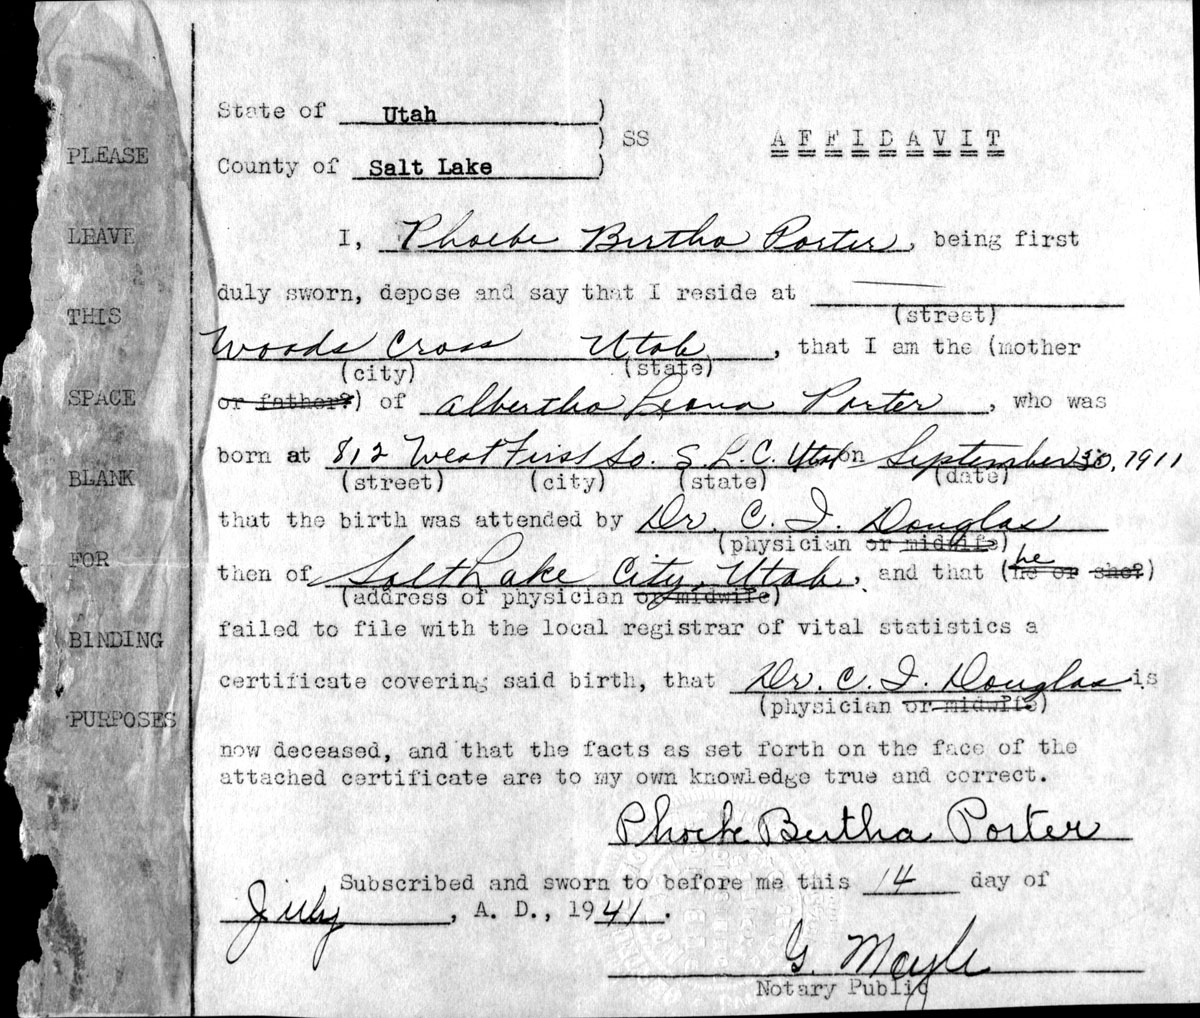 State of Utah )
) SS AFFIDAVIT
County of Salt Lake )
PLEASE
LEAVE
THIS
SPACE
BLANK
FOR
BINDING
PURPOSES
I, Phoebe Bertha Porter, being first
duly sworn, depose and say that I reside at
(street)
Woods Cross Utah, that I am the (mother
(city) (state)
or father?) of Albertha Leona Porter, who was
born at 812 West First So. S. L. C. Utah on September 30, 1911
(street) (city) (state) (date)
that the birth was attended by Dr. C. I. Douglas
(physician or midwife)
he
then of Salt Lake City, Utah, and that (he or she?)
(address of physician or midwife)
failed to file with the local registrar of vital statistics a
certificate covering said birth, that Dr. C. I. Douglas is
(physician or midwife)
now deceased, and that the facts as set forth on the face of the
attached certificate are to my own knowledge true and correct.
Phoebe Bertha Porter
Subscribed and sworn to before me this 14 day of
July, A. D., 1941.
G. Moyle
Notary Public